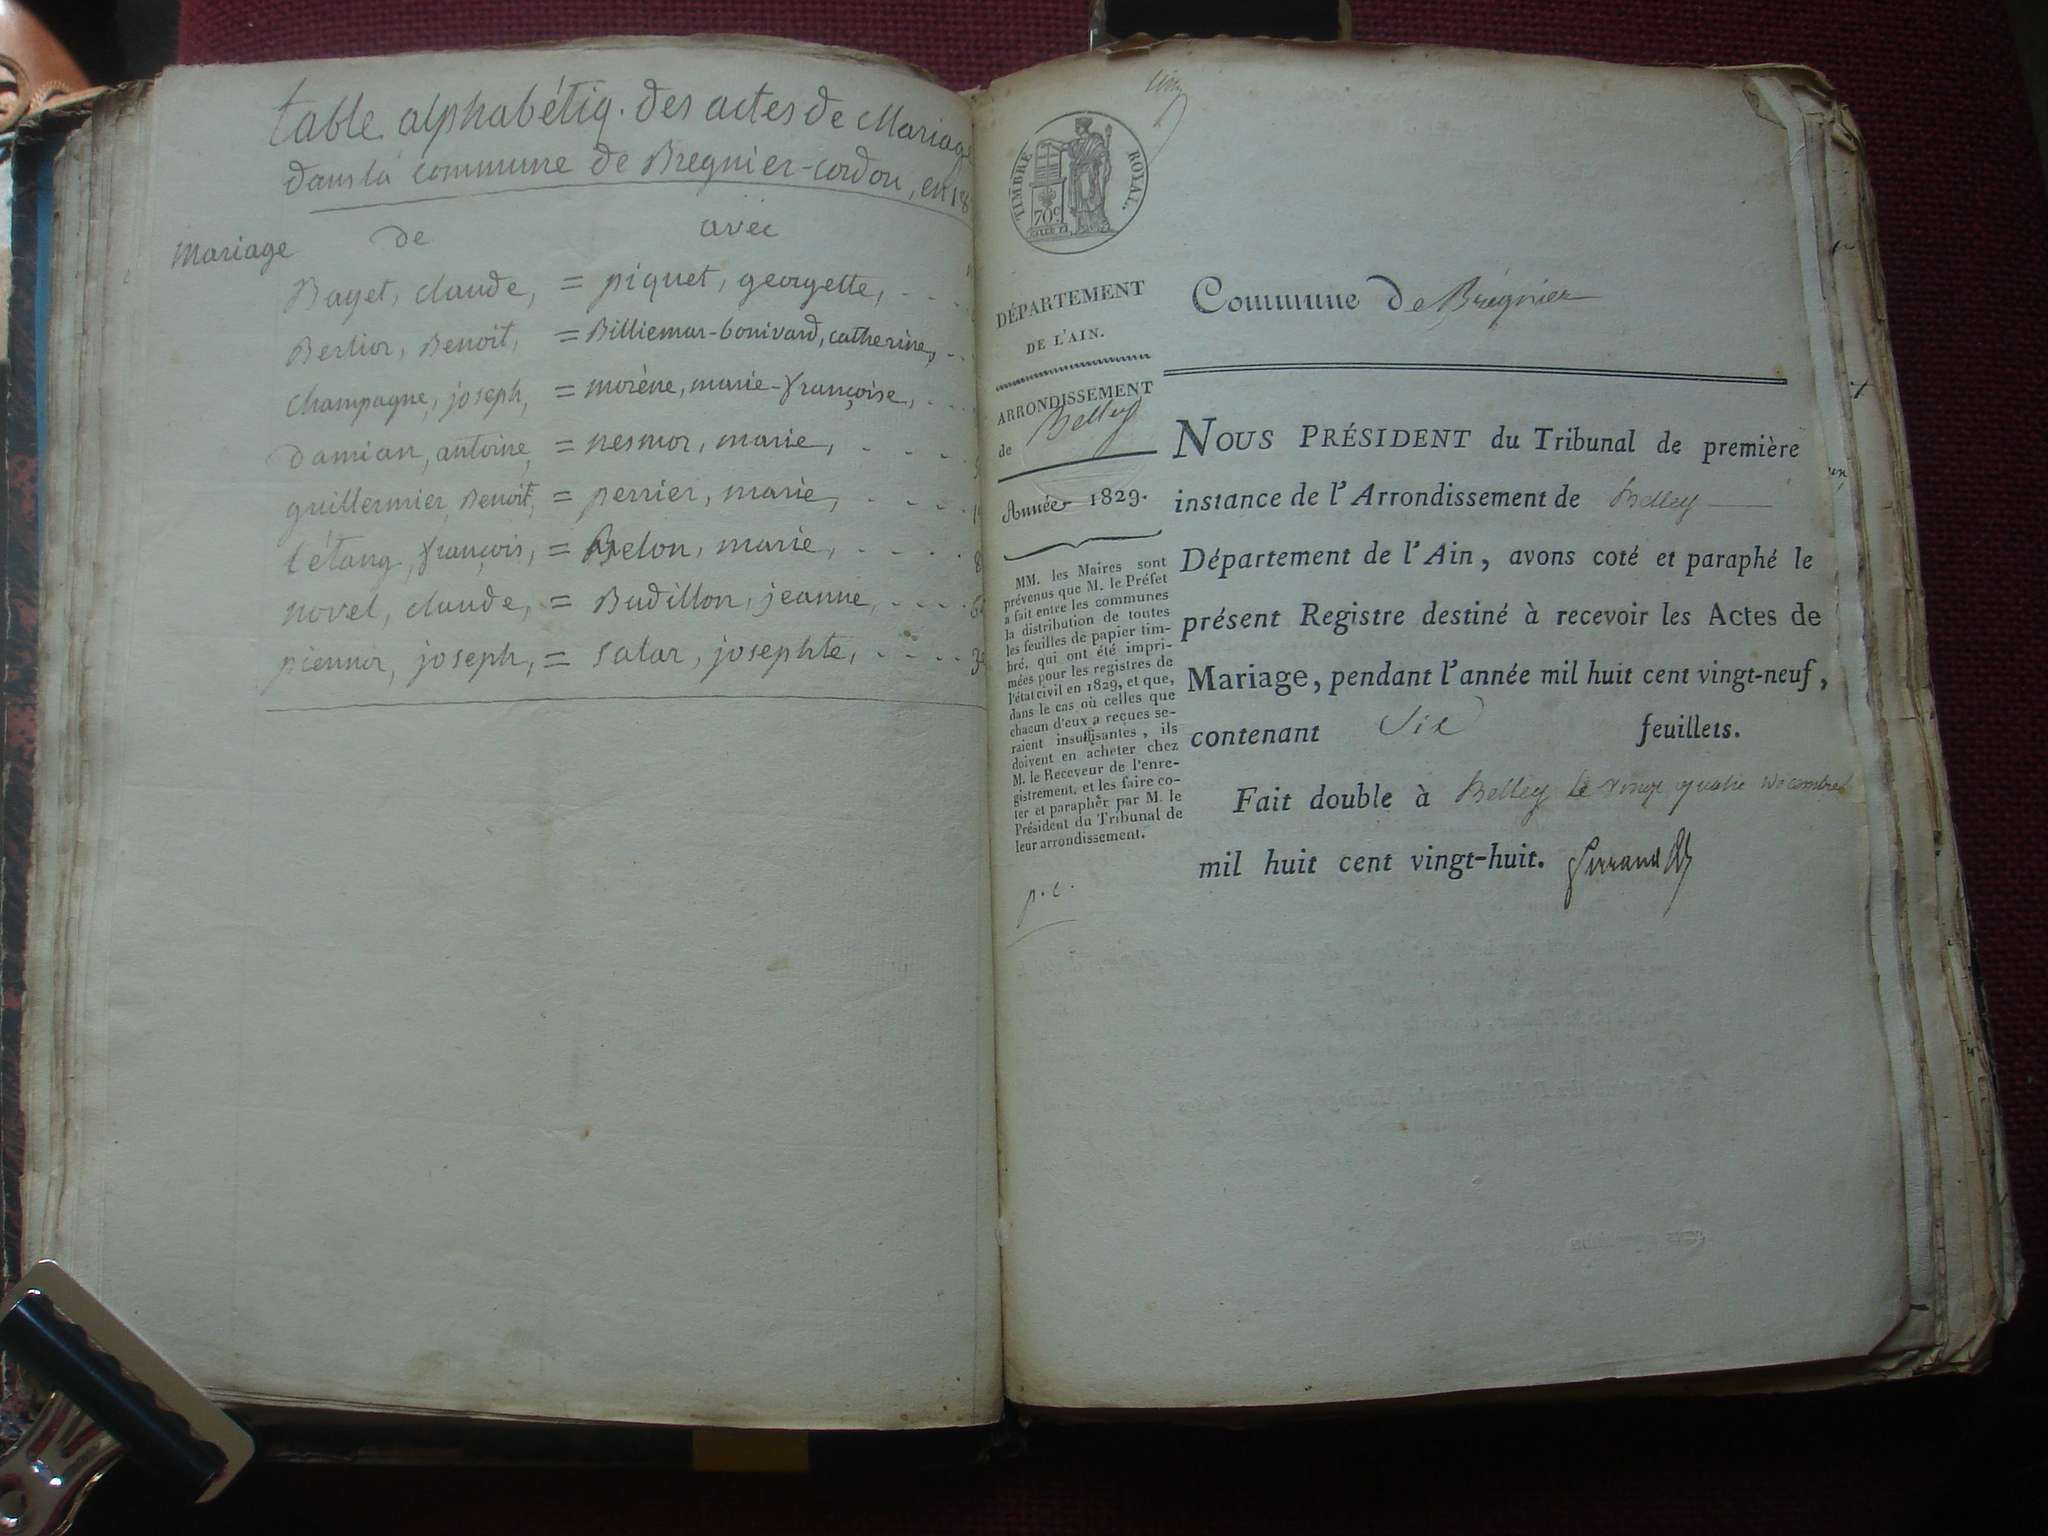 table alphabétiq. des actes de Mariage
dans la commune de Bregnier-cordon, en 18
Mariage de avec
Baget, claude, = piquet, georgette,
Berlior, Benoit, = Billiemar-bonivard, catherine,
champagne, joseph, = morène, marie-françoise,
damian, antoine, = nesmor, marie,
guillermier, Benoit, = perrier, marie,
létang, françois, = Belon, marie,
novel, claude, = Budillon, jeanne,
piennor, joseph, = salar, josephte,
TIMBRE ROYAL.
70c
DÉPARTEMENT
DE L'AIN.
ARRONDISSEMENT
de Belley
Année 1829.
MM. les Maires sont
prévenus que M. le Préfet
a fait entre les communes
la distribution de toutes
les feuilles de papier tim-
bré, qui ont été impri-
mées pour les registres de
l'état civil en 1829, et que,
dans le cas où celles que
chacun d'eux a reçues se-
raient insuffisantes, ils
doivent en acheter chez
M. le Receveur de l'enre-
gistrement, et les faire co-
ter et parapher par M. le
Président du Tribunal de
leur arrondissement.
p. c.
Commune de Brégnier
NOUS PRÉSIDENT du Tribunal de première
instance de l'Arrondissement de Belley
Département de l'Ain, avons coté et paraphé le
présent Registre destiné à recevoir les Actes de
Mariage, pendant l'année mil huit cent vingt-neuf,
contenant Six feuillets.
Fait double à Belley le vingt quatre décembre
mil huit cent vingt-huit.